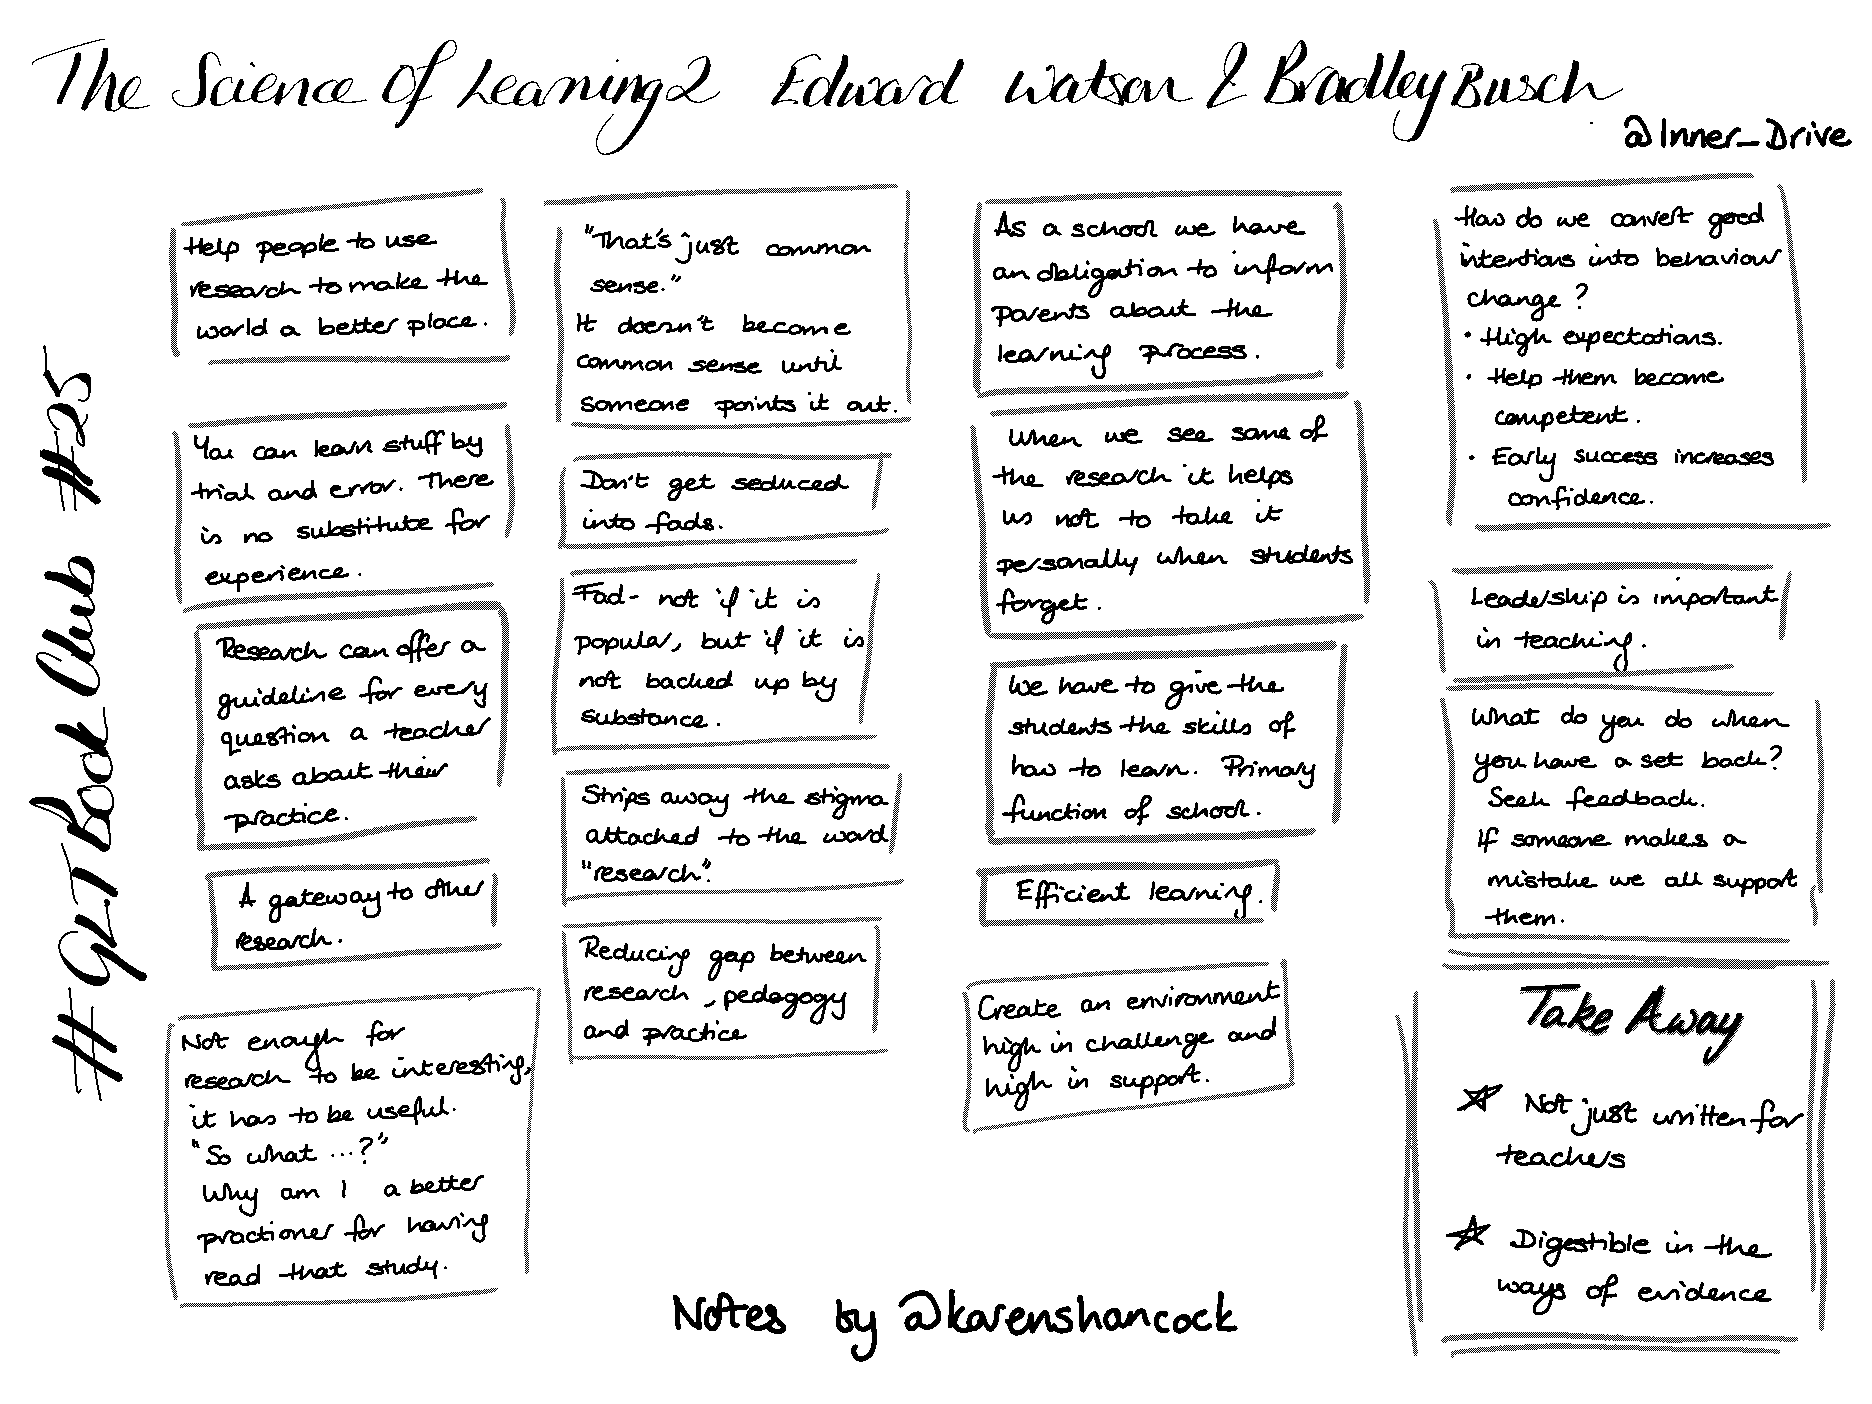 The Science Of Learning 2 Edward Watson & Bradley Busch
@Inner_Drive
#GLTBookClub #25
Help people to use
research to make the
world a better place.
You can learn stuff by
trial and error. There
is no substitute for
experience.
Research can offer a
guideline for every
question a teacher
asks about their
practice.
A gateway to other
research.
Not enough for
research to be interesting,
it has to be useful.
"So what ...?"
Why am I a better
practioner for having
read that study.
"That's just common
sense."
It doesn't become
common sense until
someone points it out.
Don't get seduced
into fads.
Fad - not if it is
popular, but if it is
not backed up by
substance.
Strips away the stigma
attached to the word
"research".
Reducing gap between
research, pedagogy
and practice
As a school we have
an obligation to inform
parents about the
learning process.
When we see some of
the research it helps
us not to take it
personally when students
forget.
We have to give the
students the skills of
how to learn. Primary
function of school.
Efficient learning.
Create an environment
high in challenge and
high in support.
How do we convert good
intentions into behaviour
change?
• High expectations.
• Help them become
competent.
• Early success increases
confidence.
Leadership is important
in teaching.
What do you do when
you have a set back?
Seek feedback.
If someone makes a
mistake we all support
them.
Take Away
☆ Not just written for
teachers
☆ Digestible in the
ways of evidence
Notes by @karenshancock